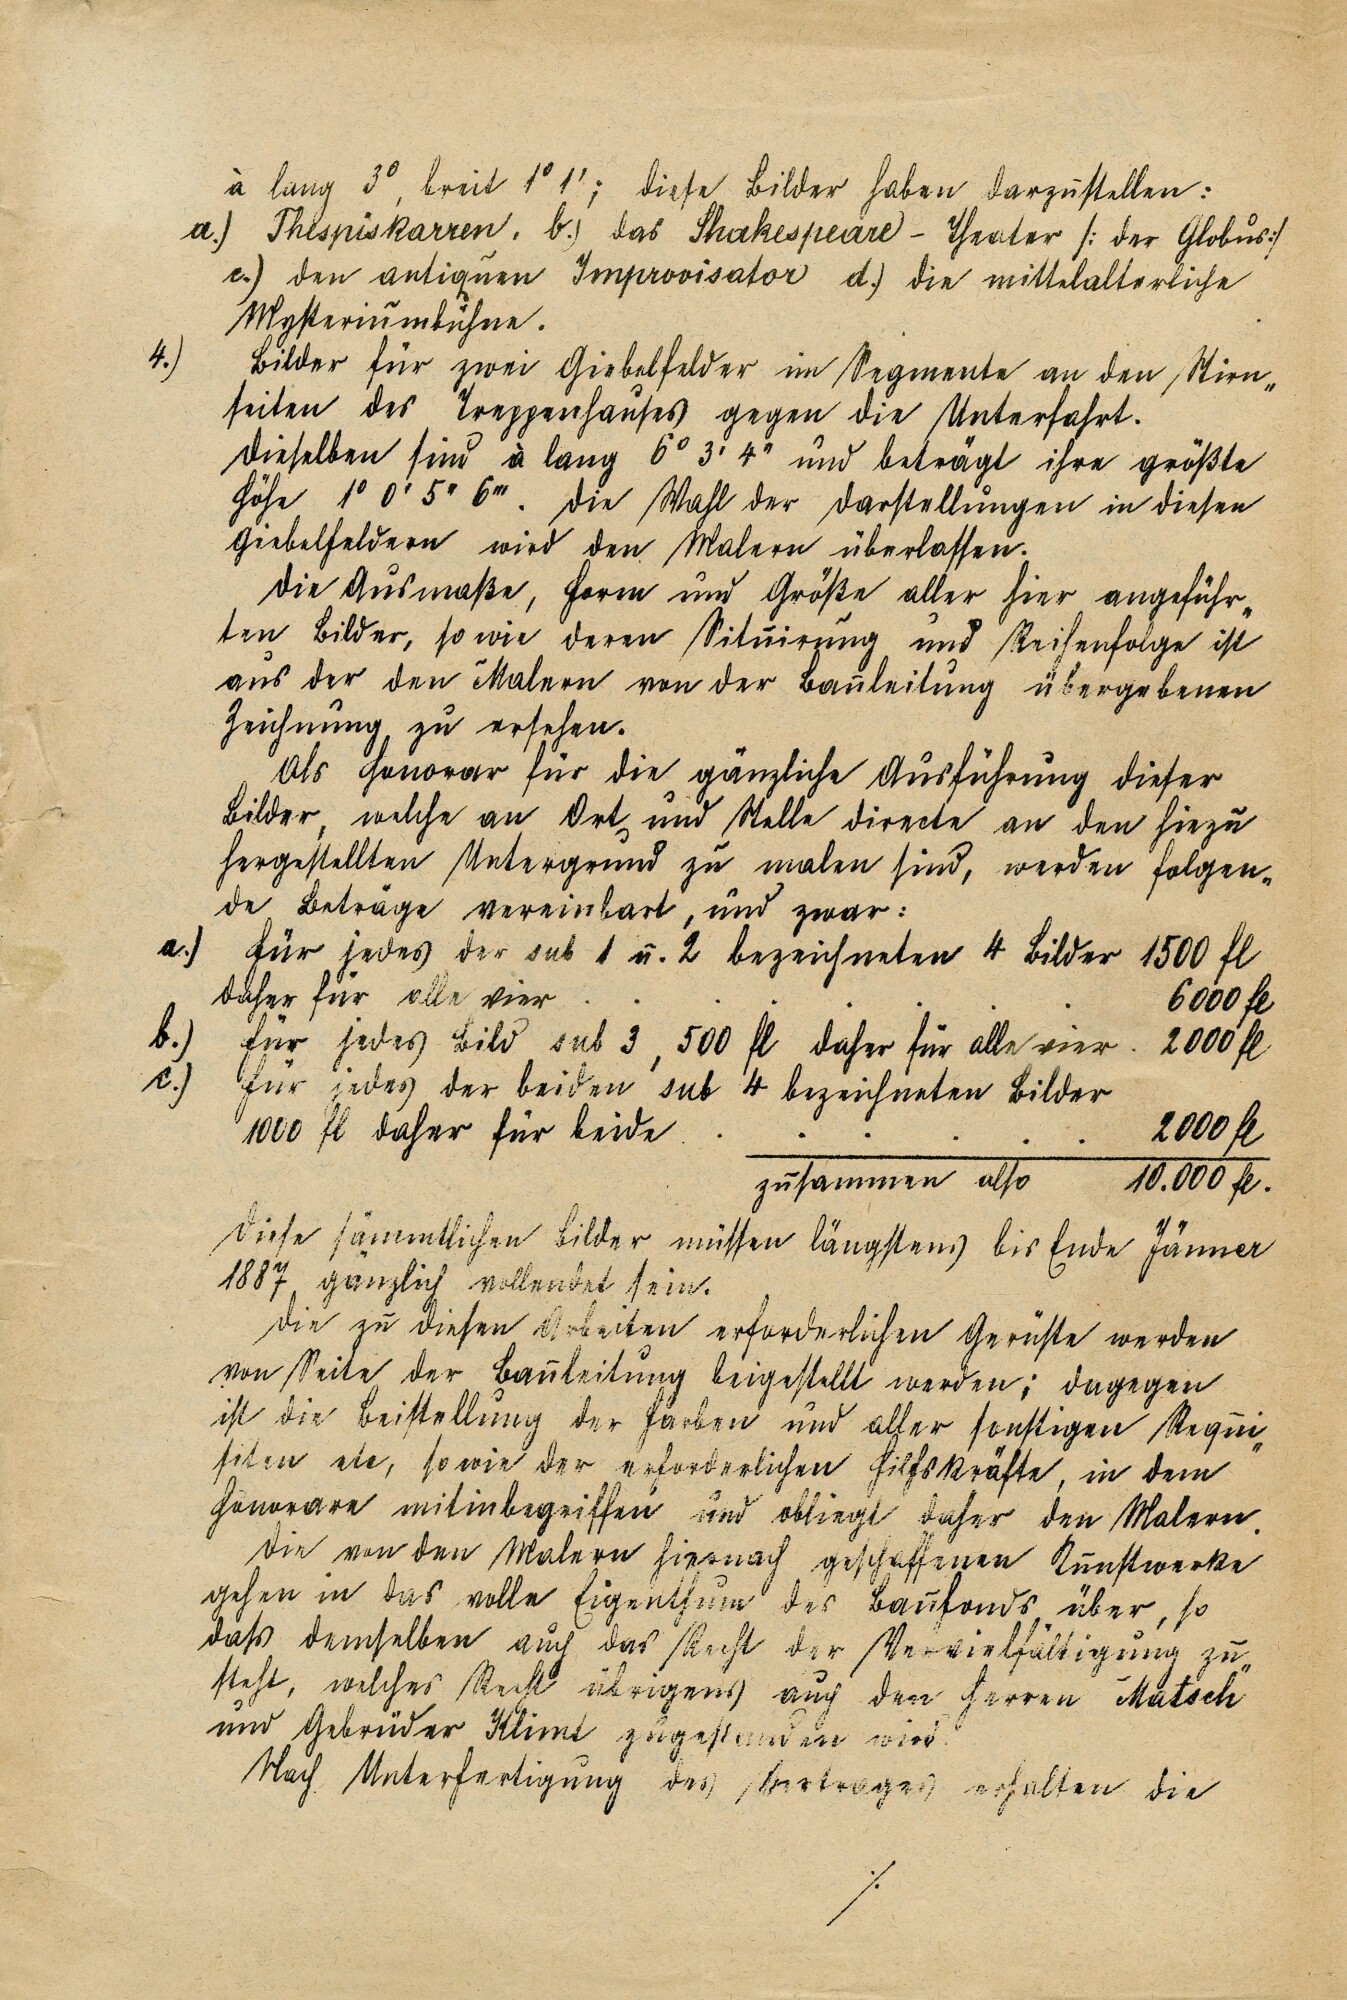 à lang 3° breit 1° 1'; diese Bilder haben darzustellen:
a.) Thespiskarren. b.) das Shakespeare - Theater /: der Globus:/
c.) den antiquen Improvisator d.) die mittelalterliche
Mysteriumbühne.
4.) Bilder für zwei Giebelfelder im Segmente an den Stirn„
seiten des Treppenhauses gegen die Unterfahrt.
Dieselben sind à lang 6° 3' 4" und beträgt ihre größte
Höhe 1° 0' 5" 6"'. Die Wahl der Darstellungen in diesen
Giebelfeldern wird den Malern überlassen.
Die Ausmaße, Form und Größe aller hier angeführ„
ten Bilder, sowie deren Situirung und Reihenfolge ist
aus der den Malern von der Bauleitung übergebenen
Zeichnung zu ersehen.
Als Honorar für die gänzliche Ausführung dieser
Bilder, welche an Ort und Stelle directe an den hiezu
hergestellten Untergrund zu malen sind, werden folgen„
de Beträge vereinbart, und zwar:
a.) Für jedes der sub 1 u. 2 bezeichneten 4 Bilder 1500 fl
daher für alle vier . . . . . . 6000 fl
b.) Für jedes Bild sub 3, 500 fl daher für alle vier . 2000 fl
c.) Für jedes der beiden sub 4 bezeichneten Bilder
1000 fl daher für beide . . . . . . 2000 fl
zusammen also 10.000 fl.
Diese sämmtlichen Bilder müssen längstens bis Ende Jänner
1887 gänzlich vollendet sein.
Die zu diesen Arbeiten erforderlichen Gerüste werden
von Seite der Bauleitung beigestellt werden; dagegen
ist die Beistellung der Farben und aller sonstigen Requi„
siten etc, sowie der erforderlichen Hilfskräfte, in dem
Honorare mitinbegriffen und obliegt daher den Malern.
Die von den Malern hiernach geschaffenen Kunstwerke
gehen in das volle Eigenthum des Baufonds über, so
dass demselben auch das Recht der Vervielfältigung zu„
steht, welches Recht übrigens auch den Herren Matsch
und Gebrüder Klimt zugestanden wird.
Nach Unterfertigung des Vertrages erhalten die
./.